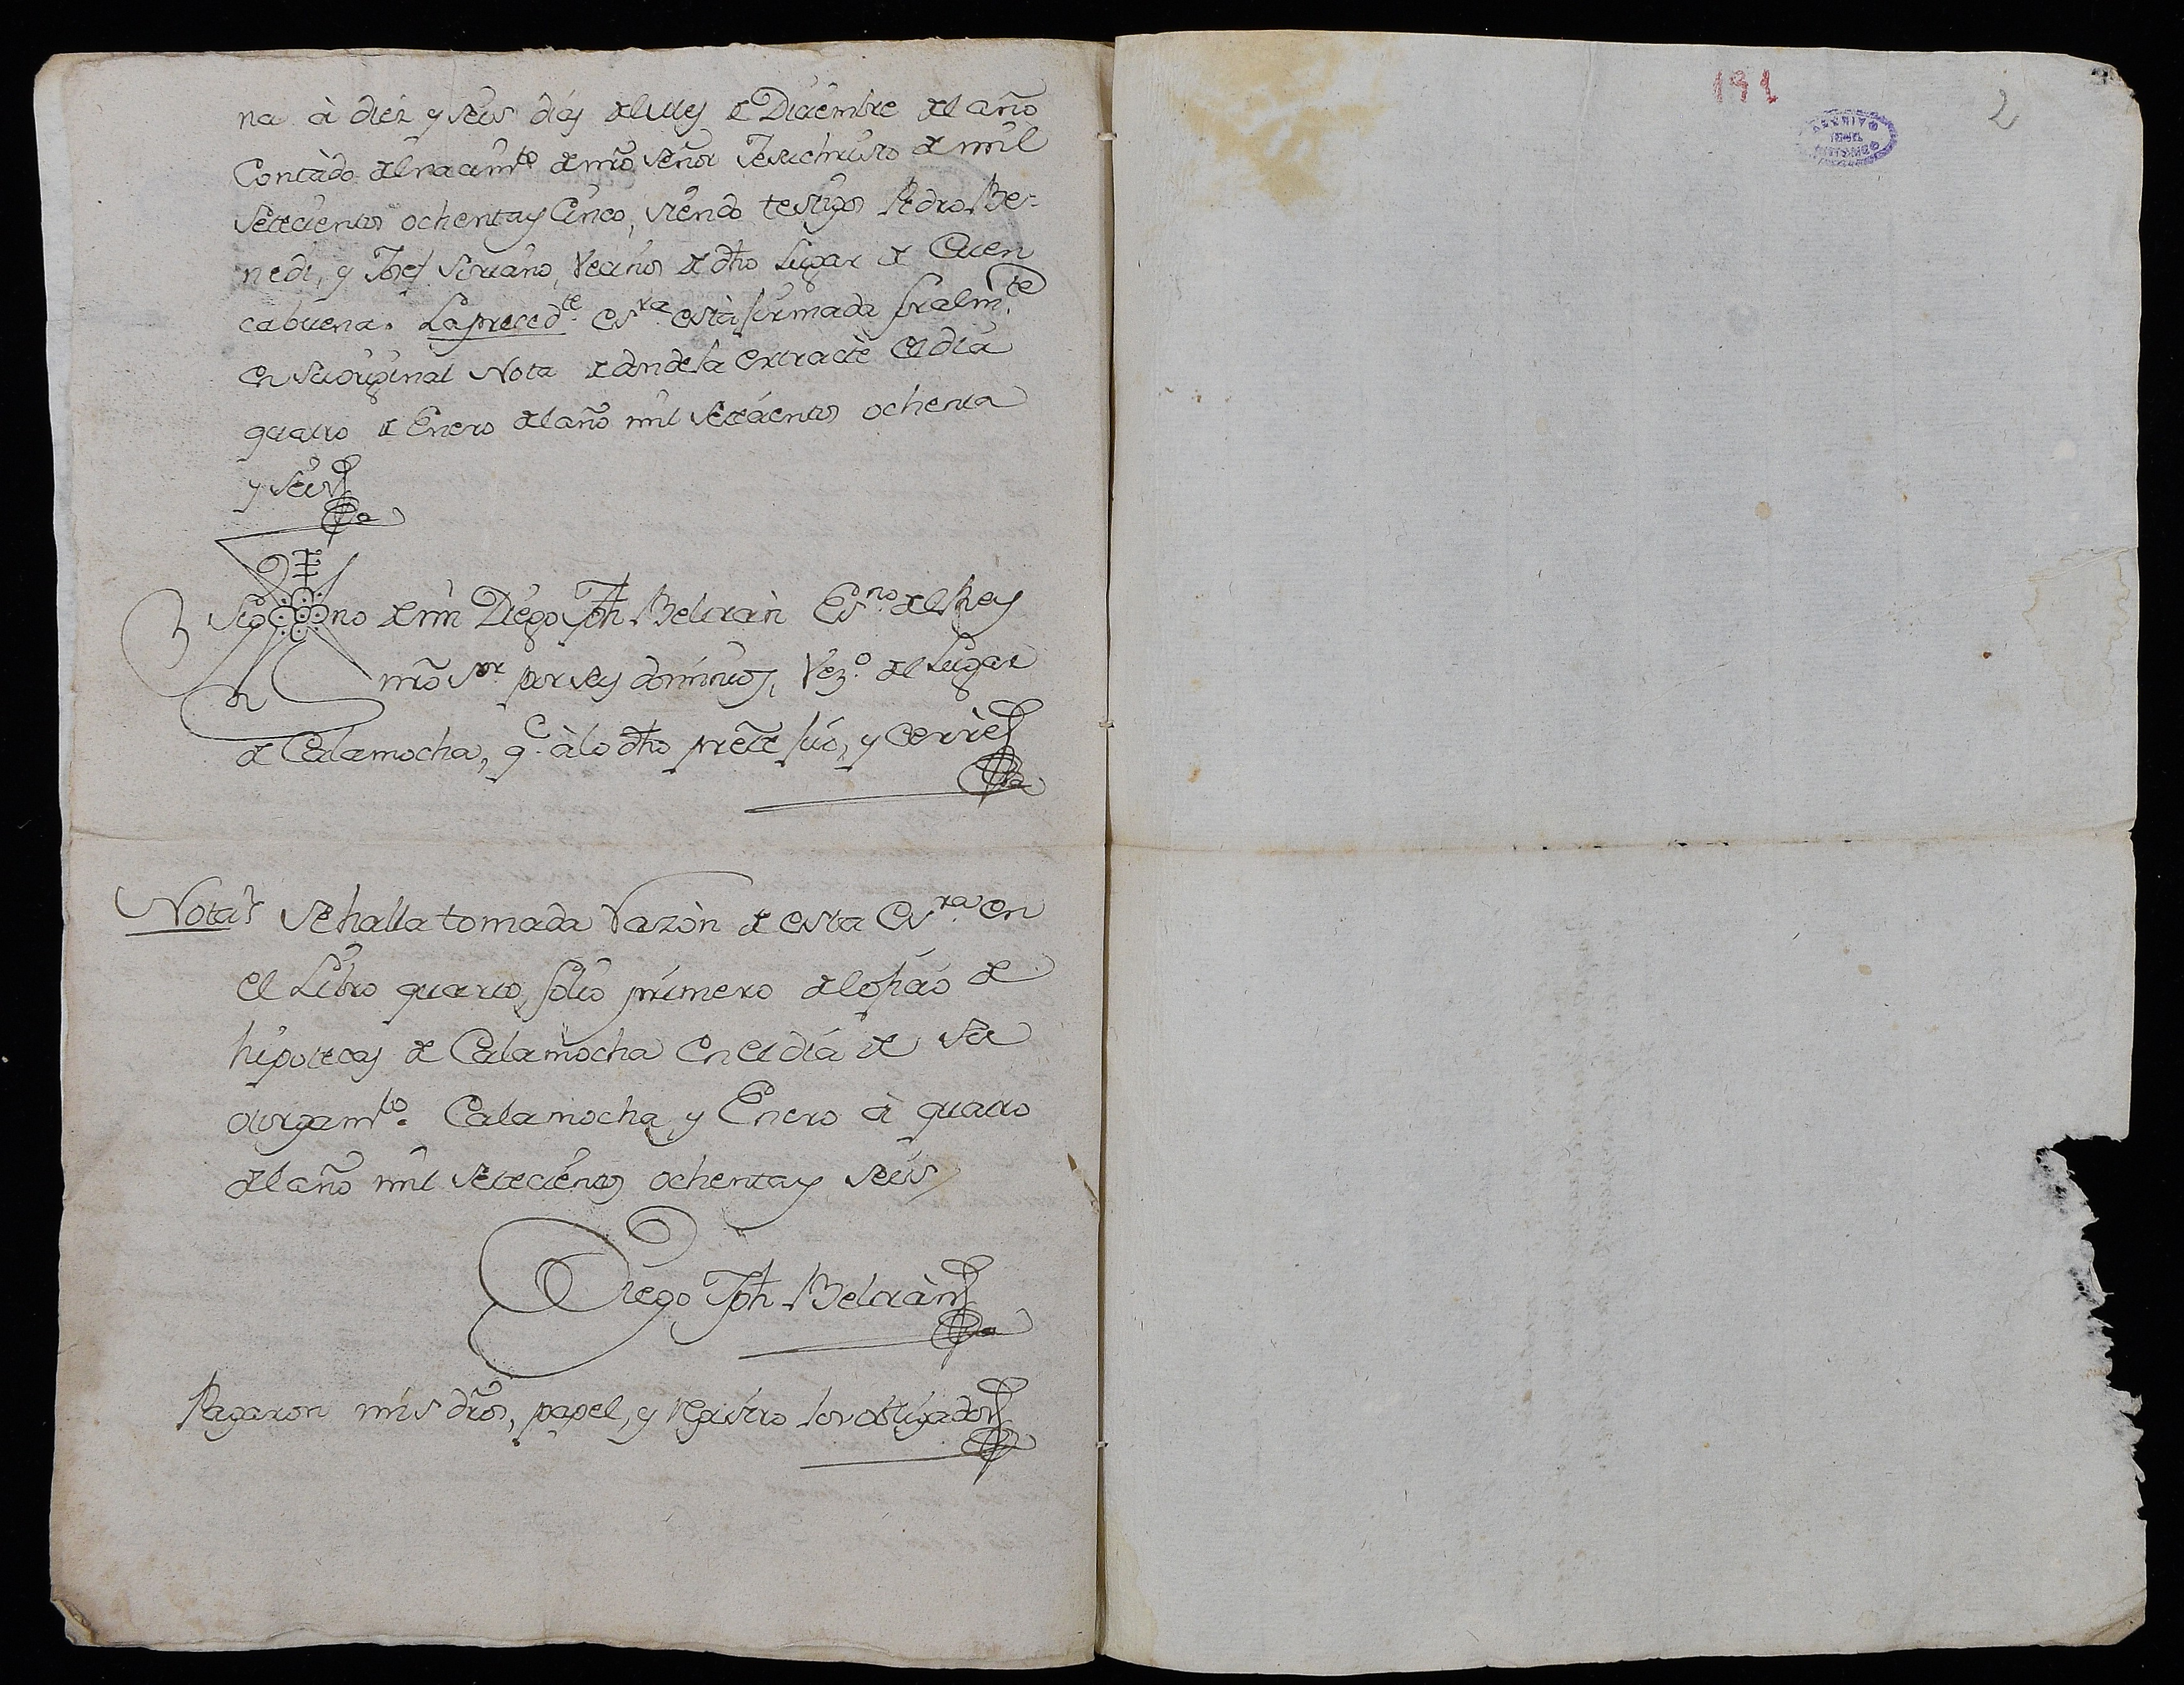 na à diez y seis días del mes de Diciembre del año
Contado del nacim.to de nrõ señor Jesuchristo de mil
setecientos ochenta y Cinco, siendo testigos Pedro Be=
nedi, y Josef Soriano, Vecinos de dho Lugar de Cuen
cabuena. La preced.te es.ra está firmada foralm.te
en su original Nota de donde la extractè el dia
quatro de Enero del año mil setecientos ochenta
y seis
Sig no de mi Diego Jph. Beltràn Es.no del Rey
nrõ s.or por sus dominios, Vez.o del Lugar
de Calamocha, q.e à lo dho preste fuí, y Cerrè
Nota: Se halla tomada razòn de esta es.ra en
el Libro quarto, folio primero del ofício de
hipotecas de Calamocha en el dia de su
otorgam.to. Calamocha y Enero à quatro
del año mil setecientos ochenta y seis
Diego Jph. Beltràn
Pagaron mis drõs, papel, y registro los obligados
191
2